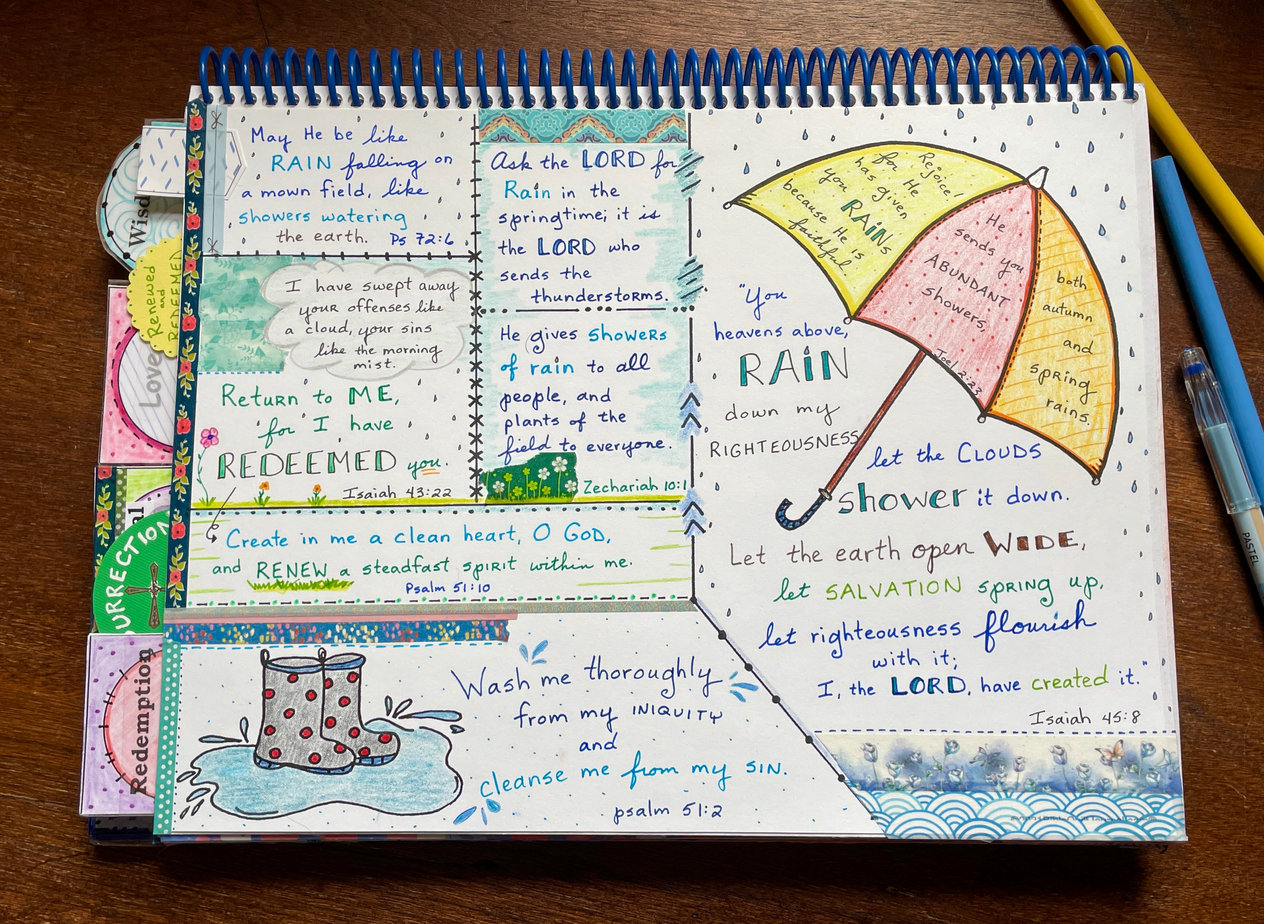 May He be like
RAIN falling on
a mown field, like
showers watering
the earth. Ps 72:6
I have swept away
your offenses like
a cloud, your sins
like the morning
mist.
Return to ME,
for I have
REDEEMED you.
Isaiah 43:22
Ask the LORD for
Rain in the
springtime; it is
the LORD who
sends the
thunderstorms.
He gives showers
of rain to all
people, and
plants of the
field to everyone.
Zechariah 10:1
Create in me a clean heart, O GOD,
and RENEW a steadfast spirit within me.
Psalm 51:10
Wash me thoroughly
from my INIQUITY
and
cleanse me from my SIN.
psalm 51:2
Rejoice!
for He
has given
you RAINs
because He is
faithful
He
sends you
ABUNDANT
showers,
Joel 2:23
both
autumn
and
spring
rains.
"You
heavens above,
RAIN
down my
RIGHTEOUSNESS
let the CLOUDS
shower it down.
Let the earth open WIDE,
let SALVATION spring up,
let righteousness flourish
with it;
I, the LORD, have created it."
Isaiah 45:8
Wisd
Renewed
and
REDEEMED
Love
al
URRECTION
Redemption
PASTEL